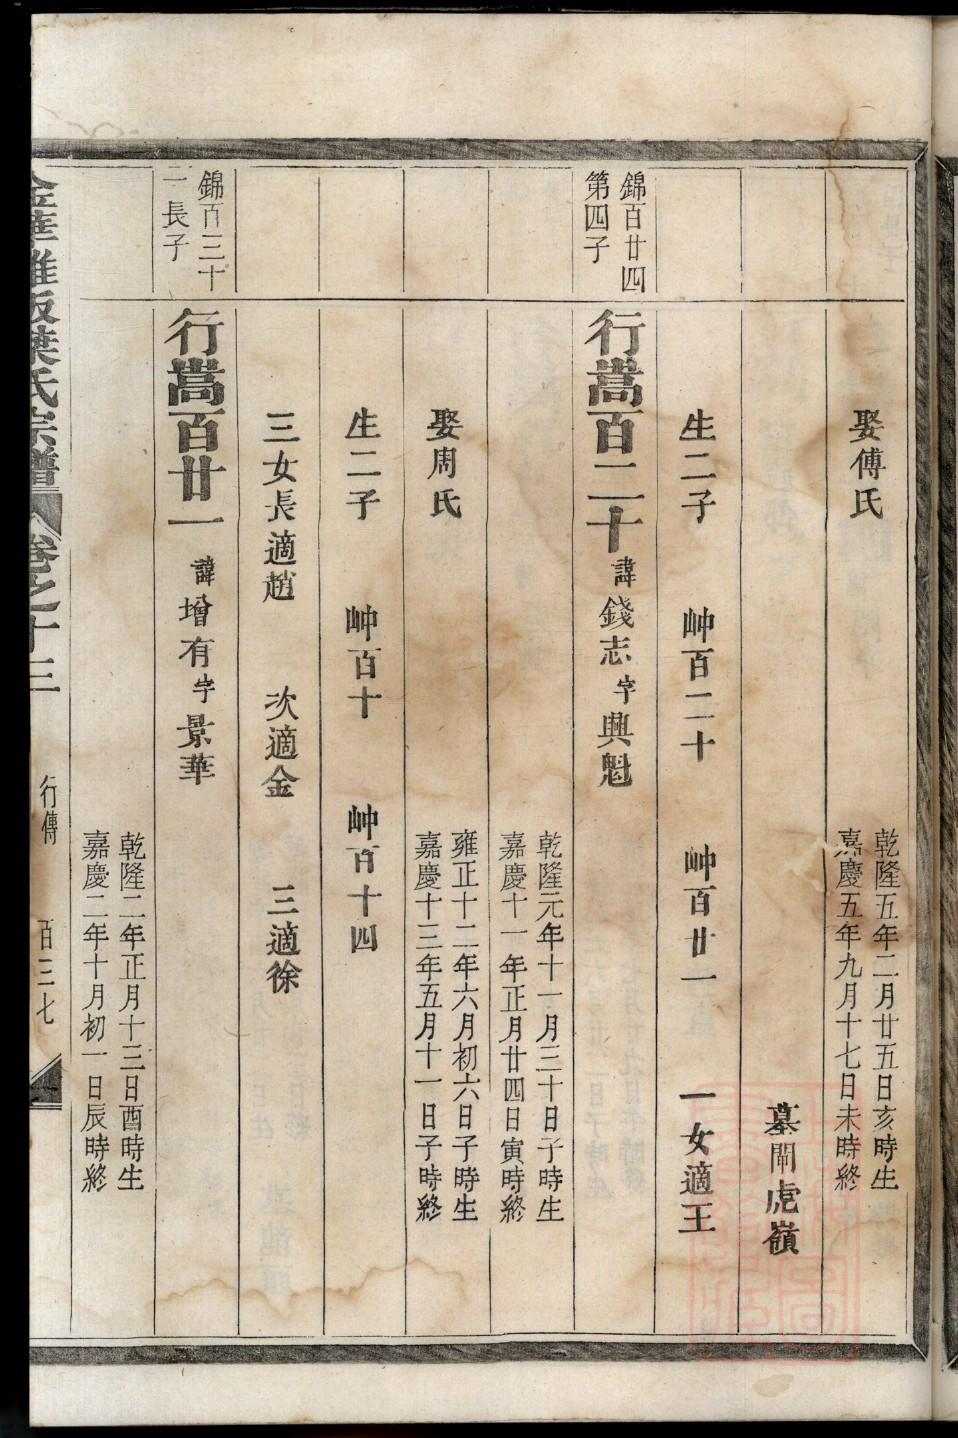 娶傅氏
乾隆五年二月廿五日亥時生
嘉慶五年九月十七日未時終
墓閘虎嶺
生二子 岫百二十 岫百廿一 一女適王
錦百廿四
第四子
行嵩百二十 諱錢志字興魁
乾隆元年十一月三十日子時生
嘉慶十一年正月廿四日寅時終
娶周氏
雍正十二年六月初六日子時生
嘉慶十三年五月十一日子時終
生二子 岫百十 岫百十四
三女長適趙 次適金 三適徐
錦百三十
一長子
行嵩百廿一 諱增有字景華
乾隆二年正月十三日酉時生
嘉慶二年十月初一日辰時終
葉氏宗譜 卷之十三 行傳 百三七